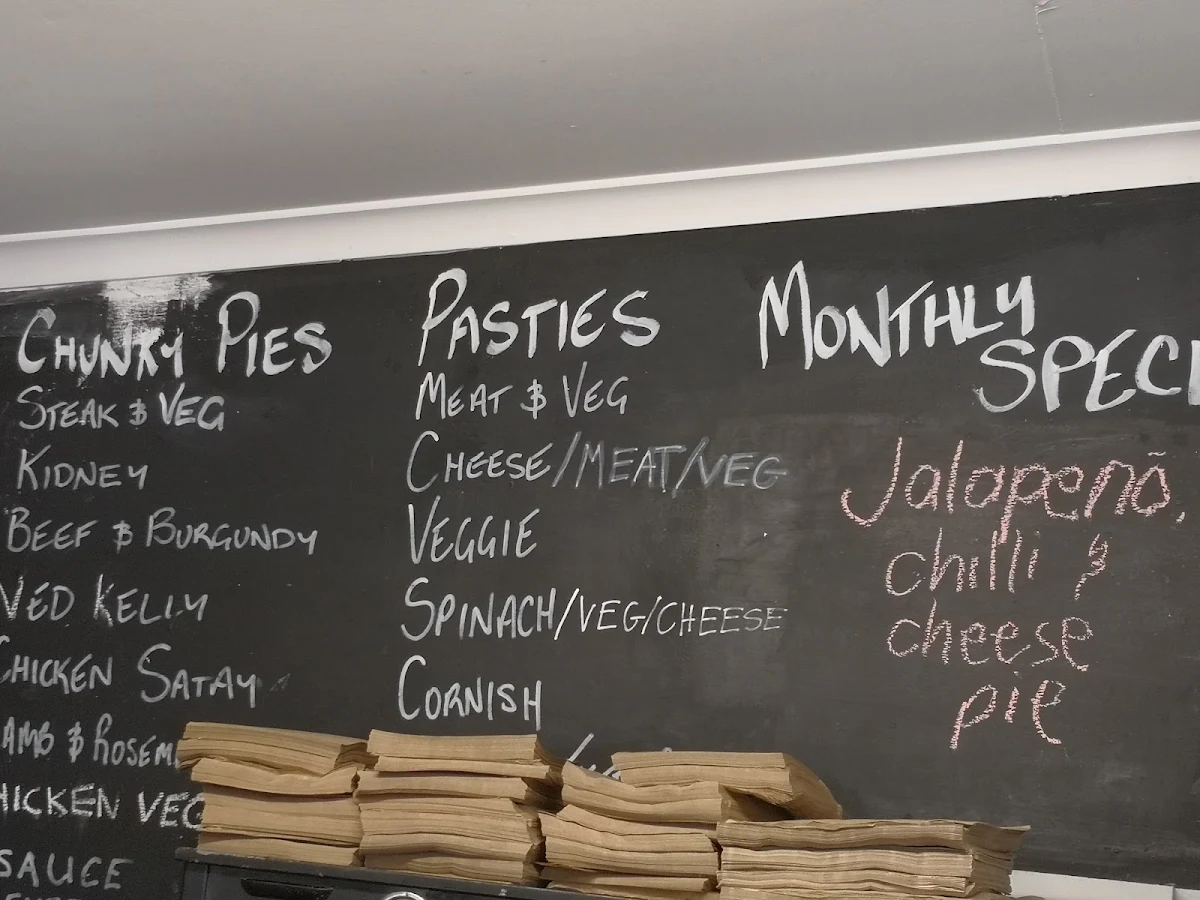 CHUNKY PIES
STEAK & VEG
KIDNEY
BEEF & BURGUNDY
NED KELLY
CHICKEN SATAY
AMB & ROSEM
HICKEN VEG
SAUCE
PASTIES
MEAT & VEG
CHEESE/MEAT/VEG
VEGGIE
SPINACH/VEG/CHEESE
CORNISH
MONTHLY
SPECI
Jalapenõ,
chilli &
cheese
pie